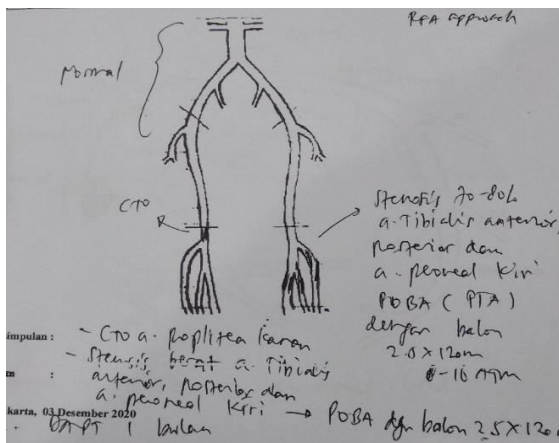 RFA approach
Normal
CTO
Stenosis 70-80%
a. Tibialis anterior,
posterior dan
a. peroneal kiri
POBA (PTA)
dengan balon
impulan : - CTO a. poplitea kanan
- Stenosis berat a. Tibialis
: anterior, posterior dan
a. peroneal kiri → POBA dgn balon 2.5x120
karta, 03 Desember 2020
DAPT 1 bulan